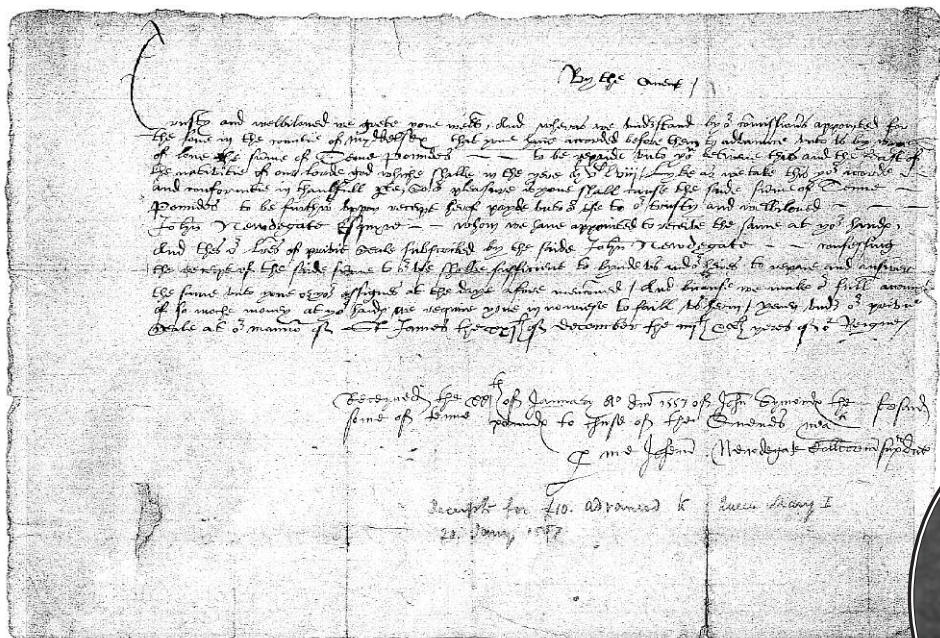 By the Quene /
rusty and welbiloved we grete youe well, And wheras we undrstand by or comissiars appoynted for
the lone in the countie of that youe have accorded before them to advaunce unto us by waye
of lone the some of Tenne poundes — — to be repaide unto yow betwene this and the feast of
the nativitie of our lorde god whiche shalbe in the yere as we take this yor
and conformitie in thankfull pleasure is youe shall cause the saide some of Tenne —
Poundes to be furthwt upon receipt herof payde unto the to or trusty and welbiloved —
John Newdegate Esquire — — whom we have appointed to receive the same at yor hands,
And thes or lres of privie seale subscribed by the saide John Newdegate — — confessing
the receipt of the saide some to shalbe sufficient to bynde us and or heires to repaye and answere
the same unto youe or yor assignes at the daye afore mencioned / And bicause we make full accompt
of so moche money at yor hands we require youe in nowise to faill us herin / yeven undr or privie
Seale at or mannor of St James the of December the yeres of or Reigne /
Receyved the xxth of January Ao dni 1557 of John Symonds the forsaid
some of tenne pounds to thuse of the Quenes
me John Newdegate
Receipte for £10. advanced to Queen Mary I
20. Jany, 1557